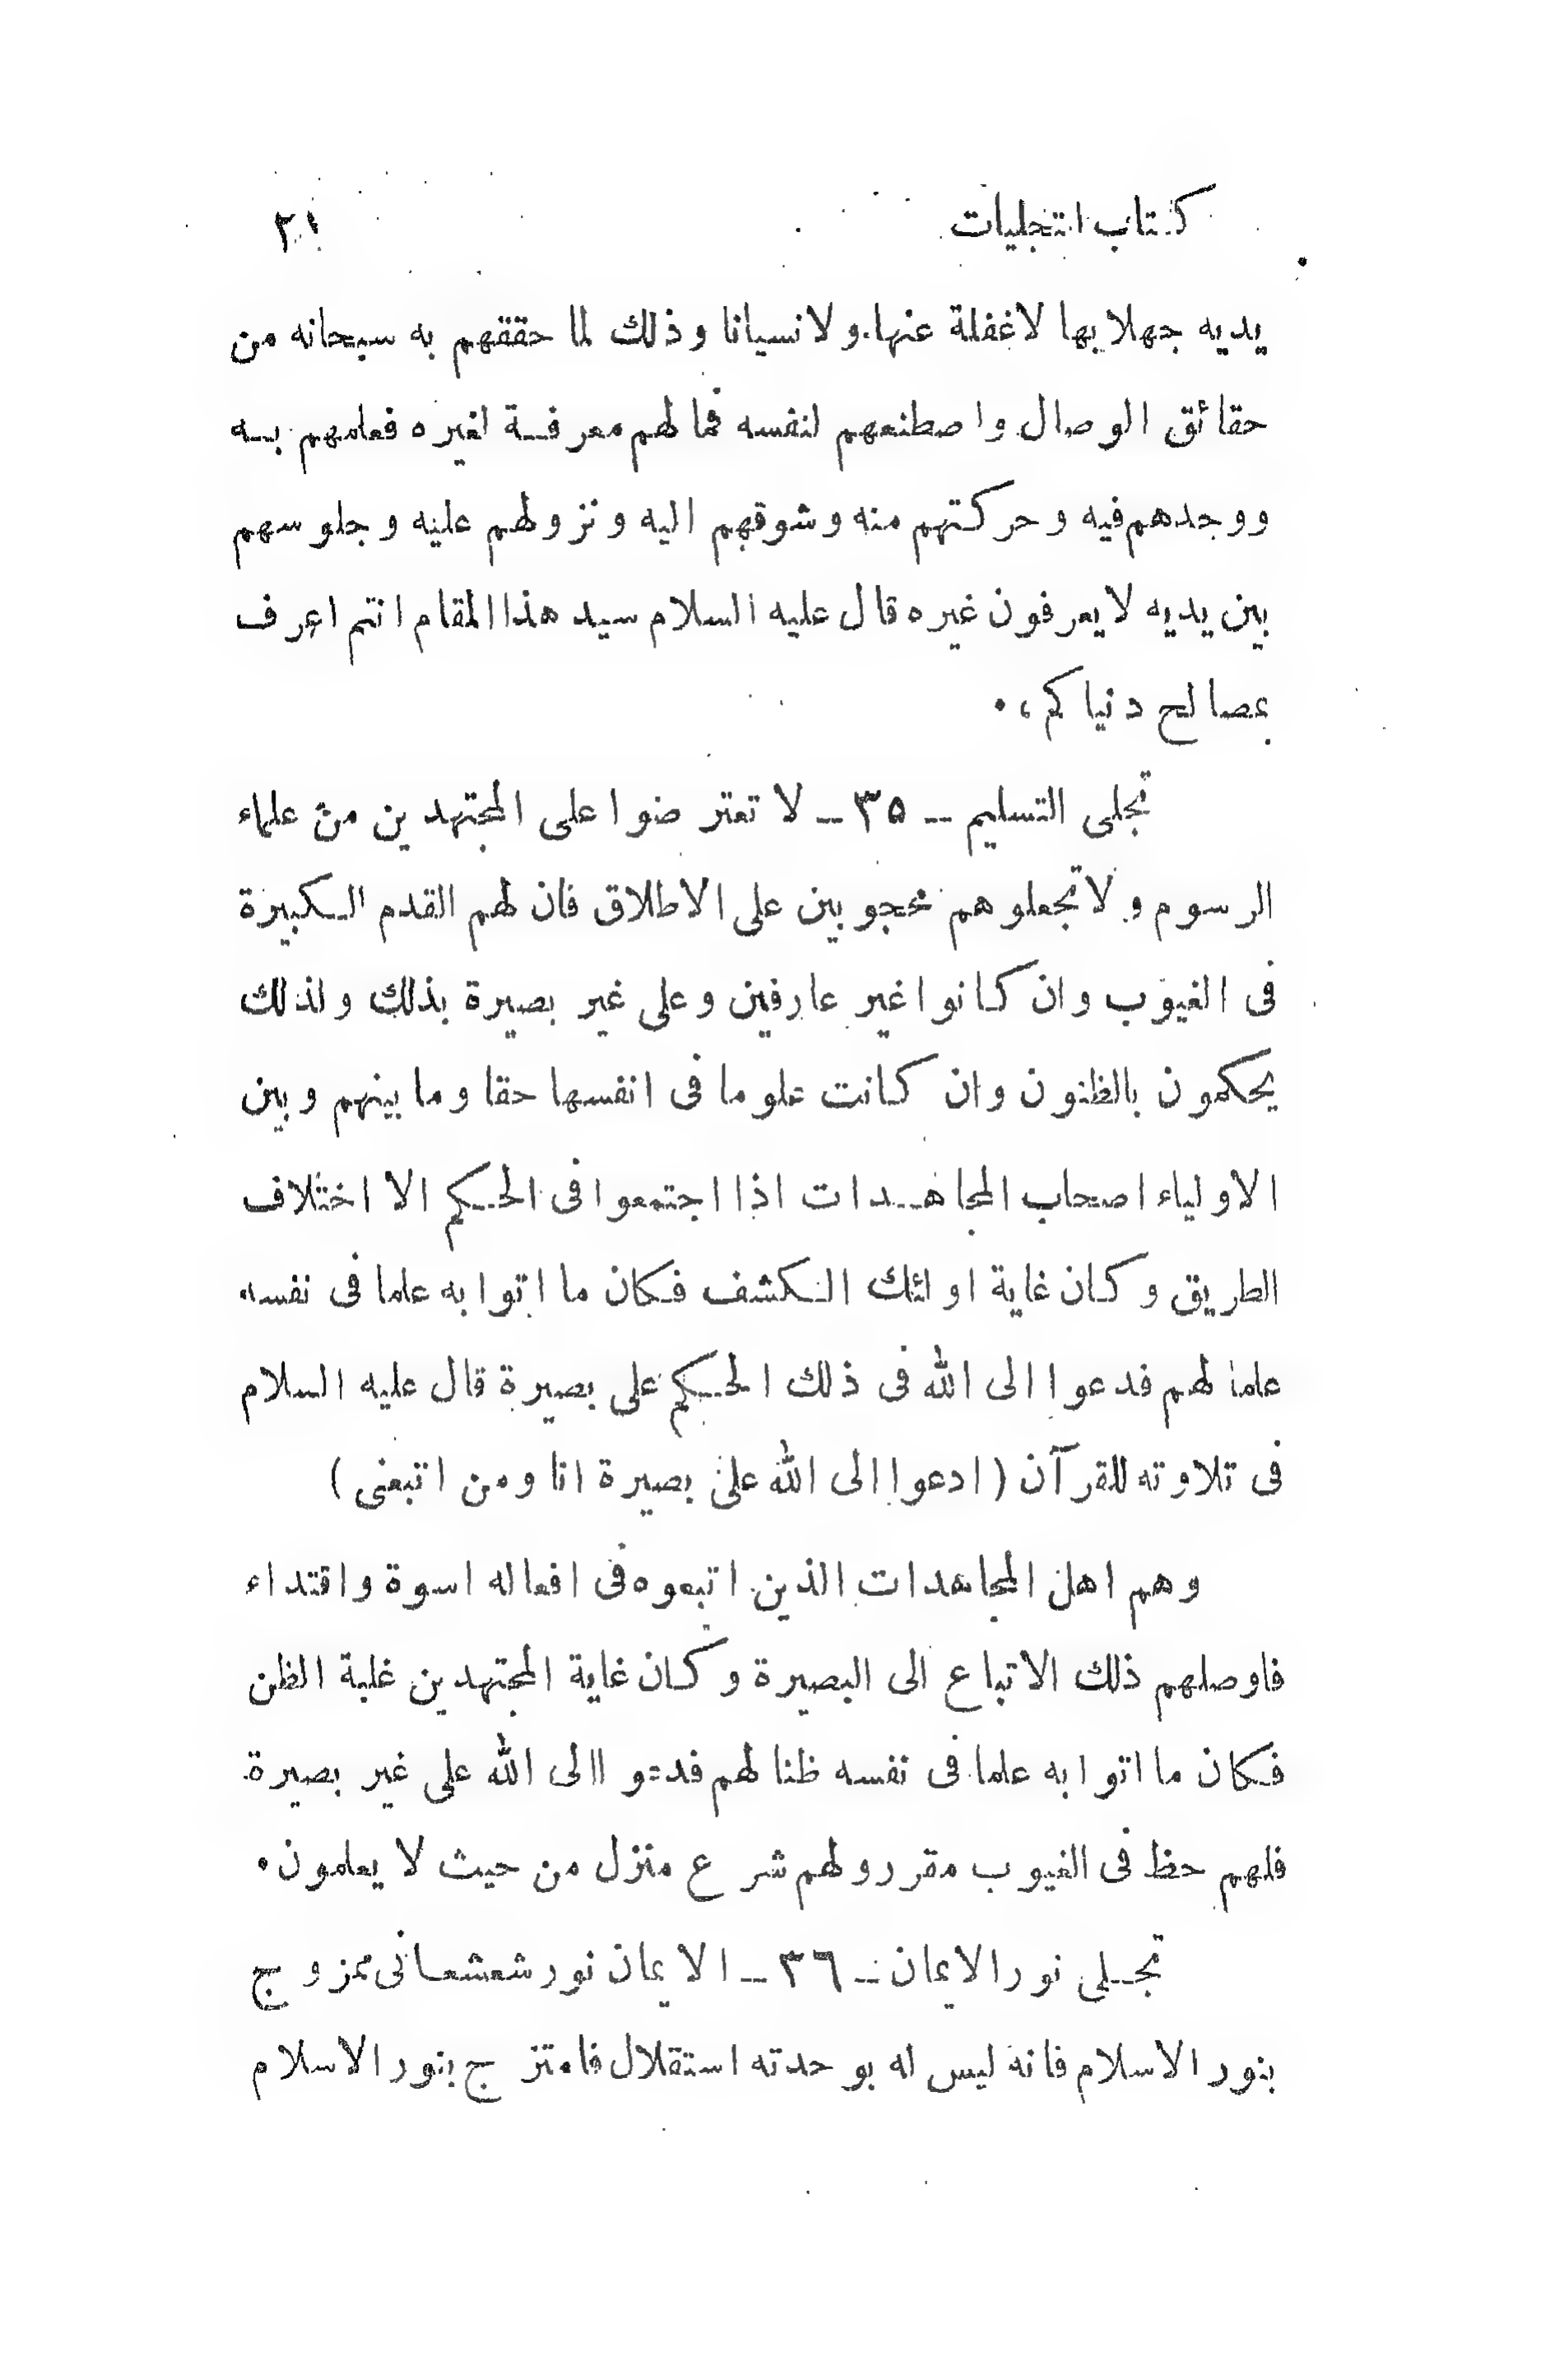 كتاب التجليات ٢١
يديه جهلا بها لا غفلة عنها ولا نسيانا وذلك لما حققهم به سبحانه من
حقائق الوصال واصطنعهم لنفسه فما لهم معرفة لغيره فعلمهم به
ووجدهم فيه وحركتهم منه وشوقهم اليه ونزولهم عليه وجلوسهم
بين يديه لا يعرفون غيره قال عليه السلام سيد هذا المقام انتم اعرف
بمصالح دنياكم ،.
تجلى التسليم -- ٣٥ -- لا تعترضوا على المجتهدين من علماء
الرسوم ولا تجعلوهم محجوبين على الاطلاق فان لهم القدم الكبيرة
فى الغيوب وان كانوا غير عارفين وعلى غير بصيرة بذلك ولذلك
يحكمون بالظنون وان كانت علوما فى انفسها حقا وما بينهم وبين
الاولياء اصحاب المجاهدات اذا اجتمعوا فى الحكم الا اختلاف
الطريق وكان غاية اولئك الكشف فكان ما اتوا به علما فى نفسه
علما لهم فدعوا الى الله فى ذلك الحكم على بصيرة قال عليه السلام
فى تلاوته للقرآن (ادعوا الى الله على بصيرة انا ومن اتبعنى)
وهم اهل المجاهدات الذين اتبعوه فى افعاله اسوة واقتداء
فاوصلهم ذلك الاتباع الى البصيرة وكان غاية المجتهدين غلبة الظن
فكان ما اتوا به علما فى نفسه ظنا لهم فدعوا الى الله على غير بصيرة
فلهم حظ فى الغيوب مقرر ولهم شرع منزل من حيث لا يعلمون .
تجلى نور الايمان -- ٣٦ -- الايمان نور شعشعانى ممزوج
بنور الاسلام فانه ليس له بوحدته استقلال فامتزج بنور الاسلام